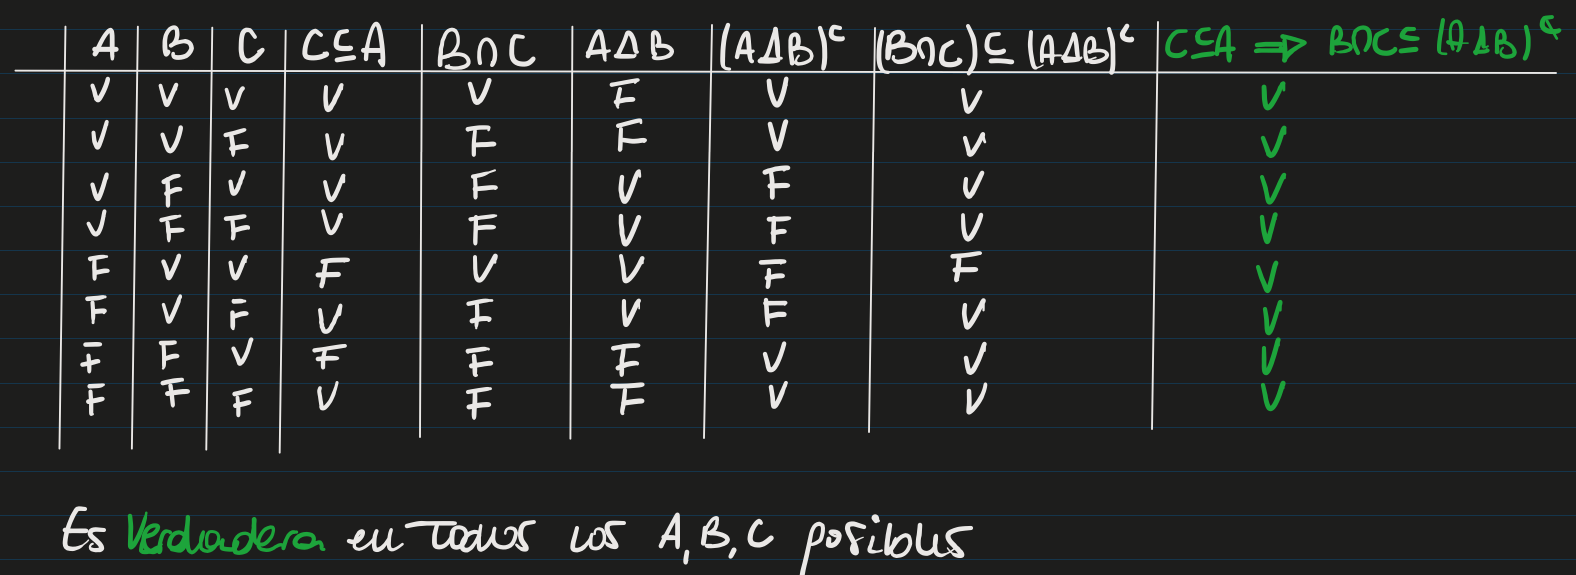 A B C C⊆A B∩C AΔB (AΔB)ᶜ (B∩C)⊆(AΔB)ᶜ C⊆A ⟹ B∩C⊆(AΔB)ᶜ
V V V V V F V V V
V V F V F F V V V
V F V V F V F V V
V F F V F V F V V
F V V F V V F F V
F V F V F V F V V
F F V F F F V V V
F F F V F F V V V
Es Verdadera en Todos los A, B, C posibles